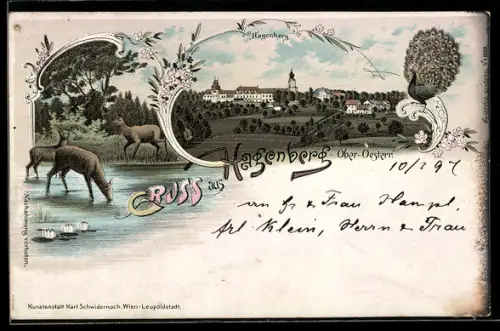 Hagenberg
GRUSS aus
Hagenberg Ober-Oestern.
10/2 97
an Hr & Frau Hampl,
Frl Klein, Herrn & Frau
Nachahmung verboten.
Kunstanstalt Karl Schwidernoch, Wien-Leopoldstadt.